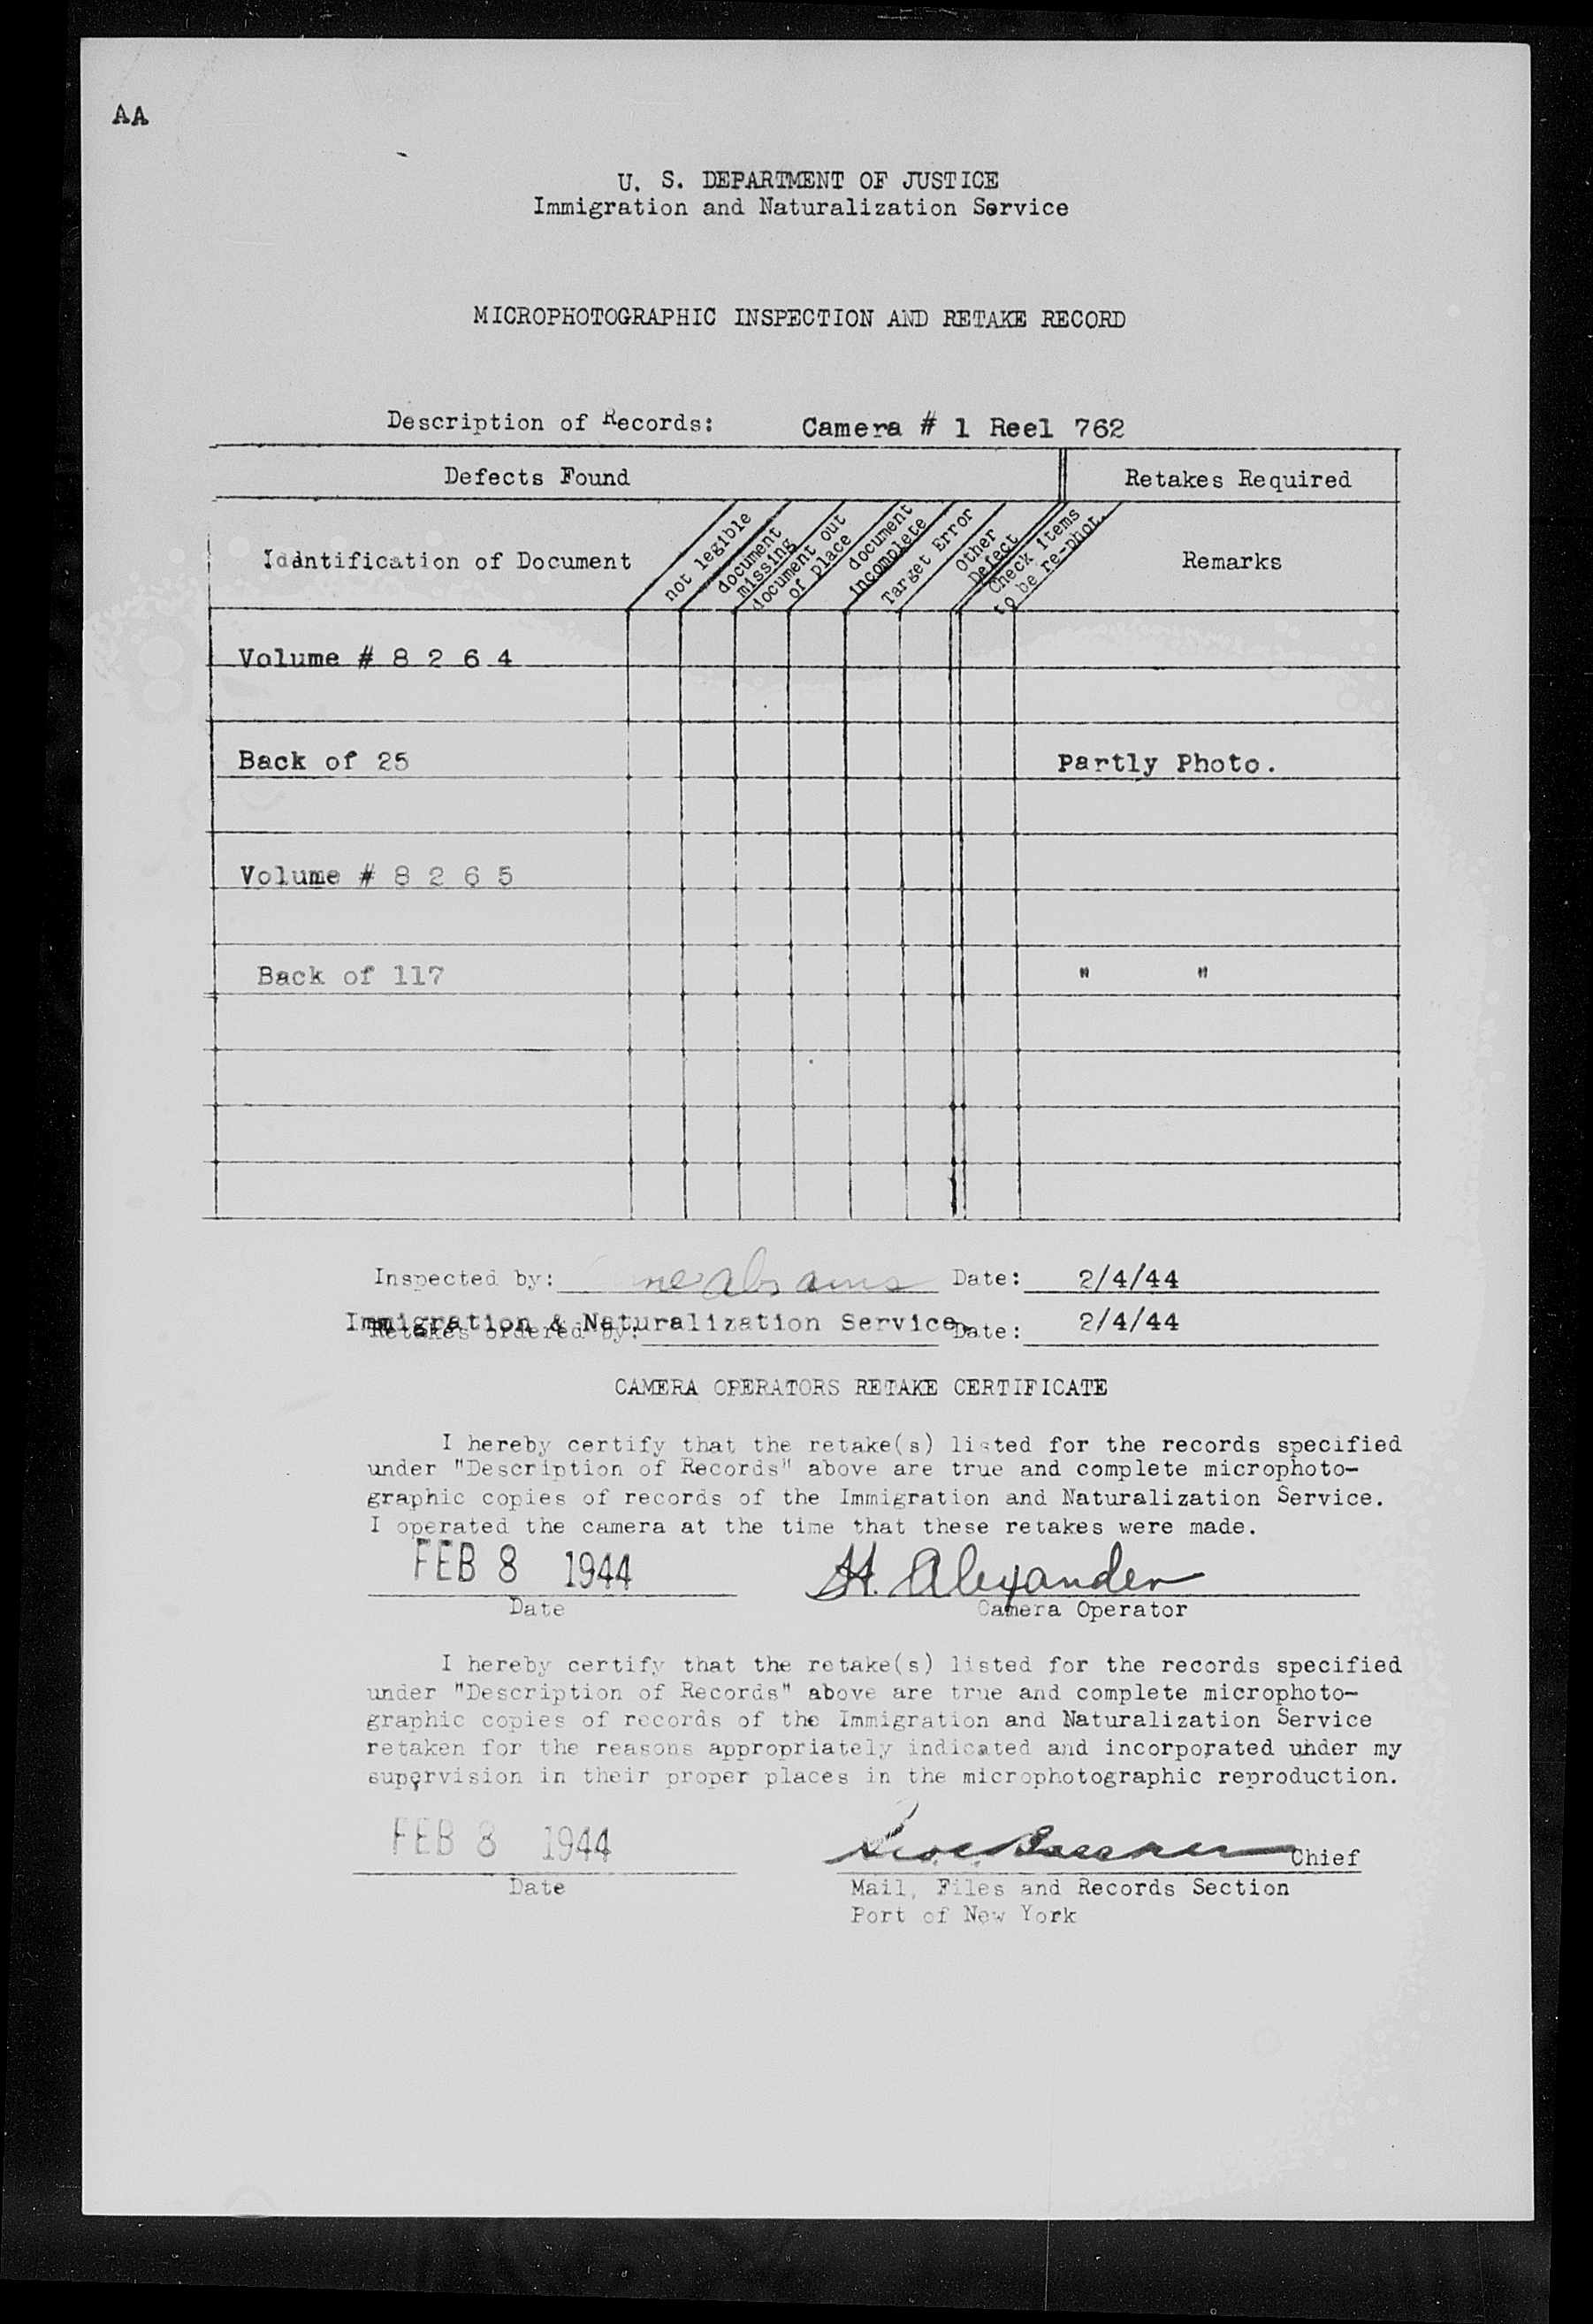 AA
U. S. DEPARTMENT OF JUSTICE
Immigration and Naturalization Service
MICROPHOTOGRAPHIC INSPECTION AND RETAKE RECORD
Description of Records: Camera # 1 Reel 762
Defects Found Retakes Required
Identification of Document
not legible
document missing
document out of place
document incomplete
Target Error
Other Defect
Check items to be re-phot.
Remarks
Volume # 8 2 6 4
Back of 25 Partly Photo.
Volume # 8 2 6 5
Back of 117 " "
Inspected by: Abrams Date: 2/4/44
Immigration & Naturalization Service.
Retakes ordered by: Date: 2/4/44
CAMERA OPERATORS RETAKE CERTIFICATE
I hereby certify that the retake(s) listed for the records specified
under "Description of Records" above are true and complete microphoto-
graphic copies of records of the Immigration and Naturalization Service.
I operated the camera at the time that these retakes were made.
FEB 8 1944 H. Alexander
Date Camera Operator
I hereby certify that the retake(s) listed for the records specified
under "Description of Records" above are true and complete microphoto-
graphic copies of records of the Immigration and Naturalization Service
retaken for the reasons appropriately indicated and incorporated under my
supervision in their proper places in the microphotographic reproduction.
FEB 8 1944 Chief
Date Mail, Files and Records Section
Port of New York